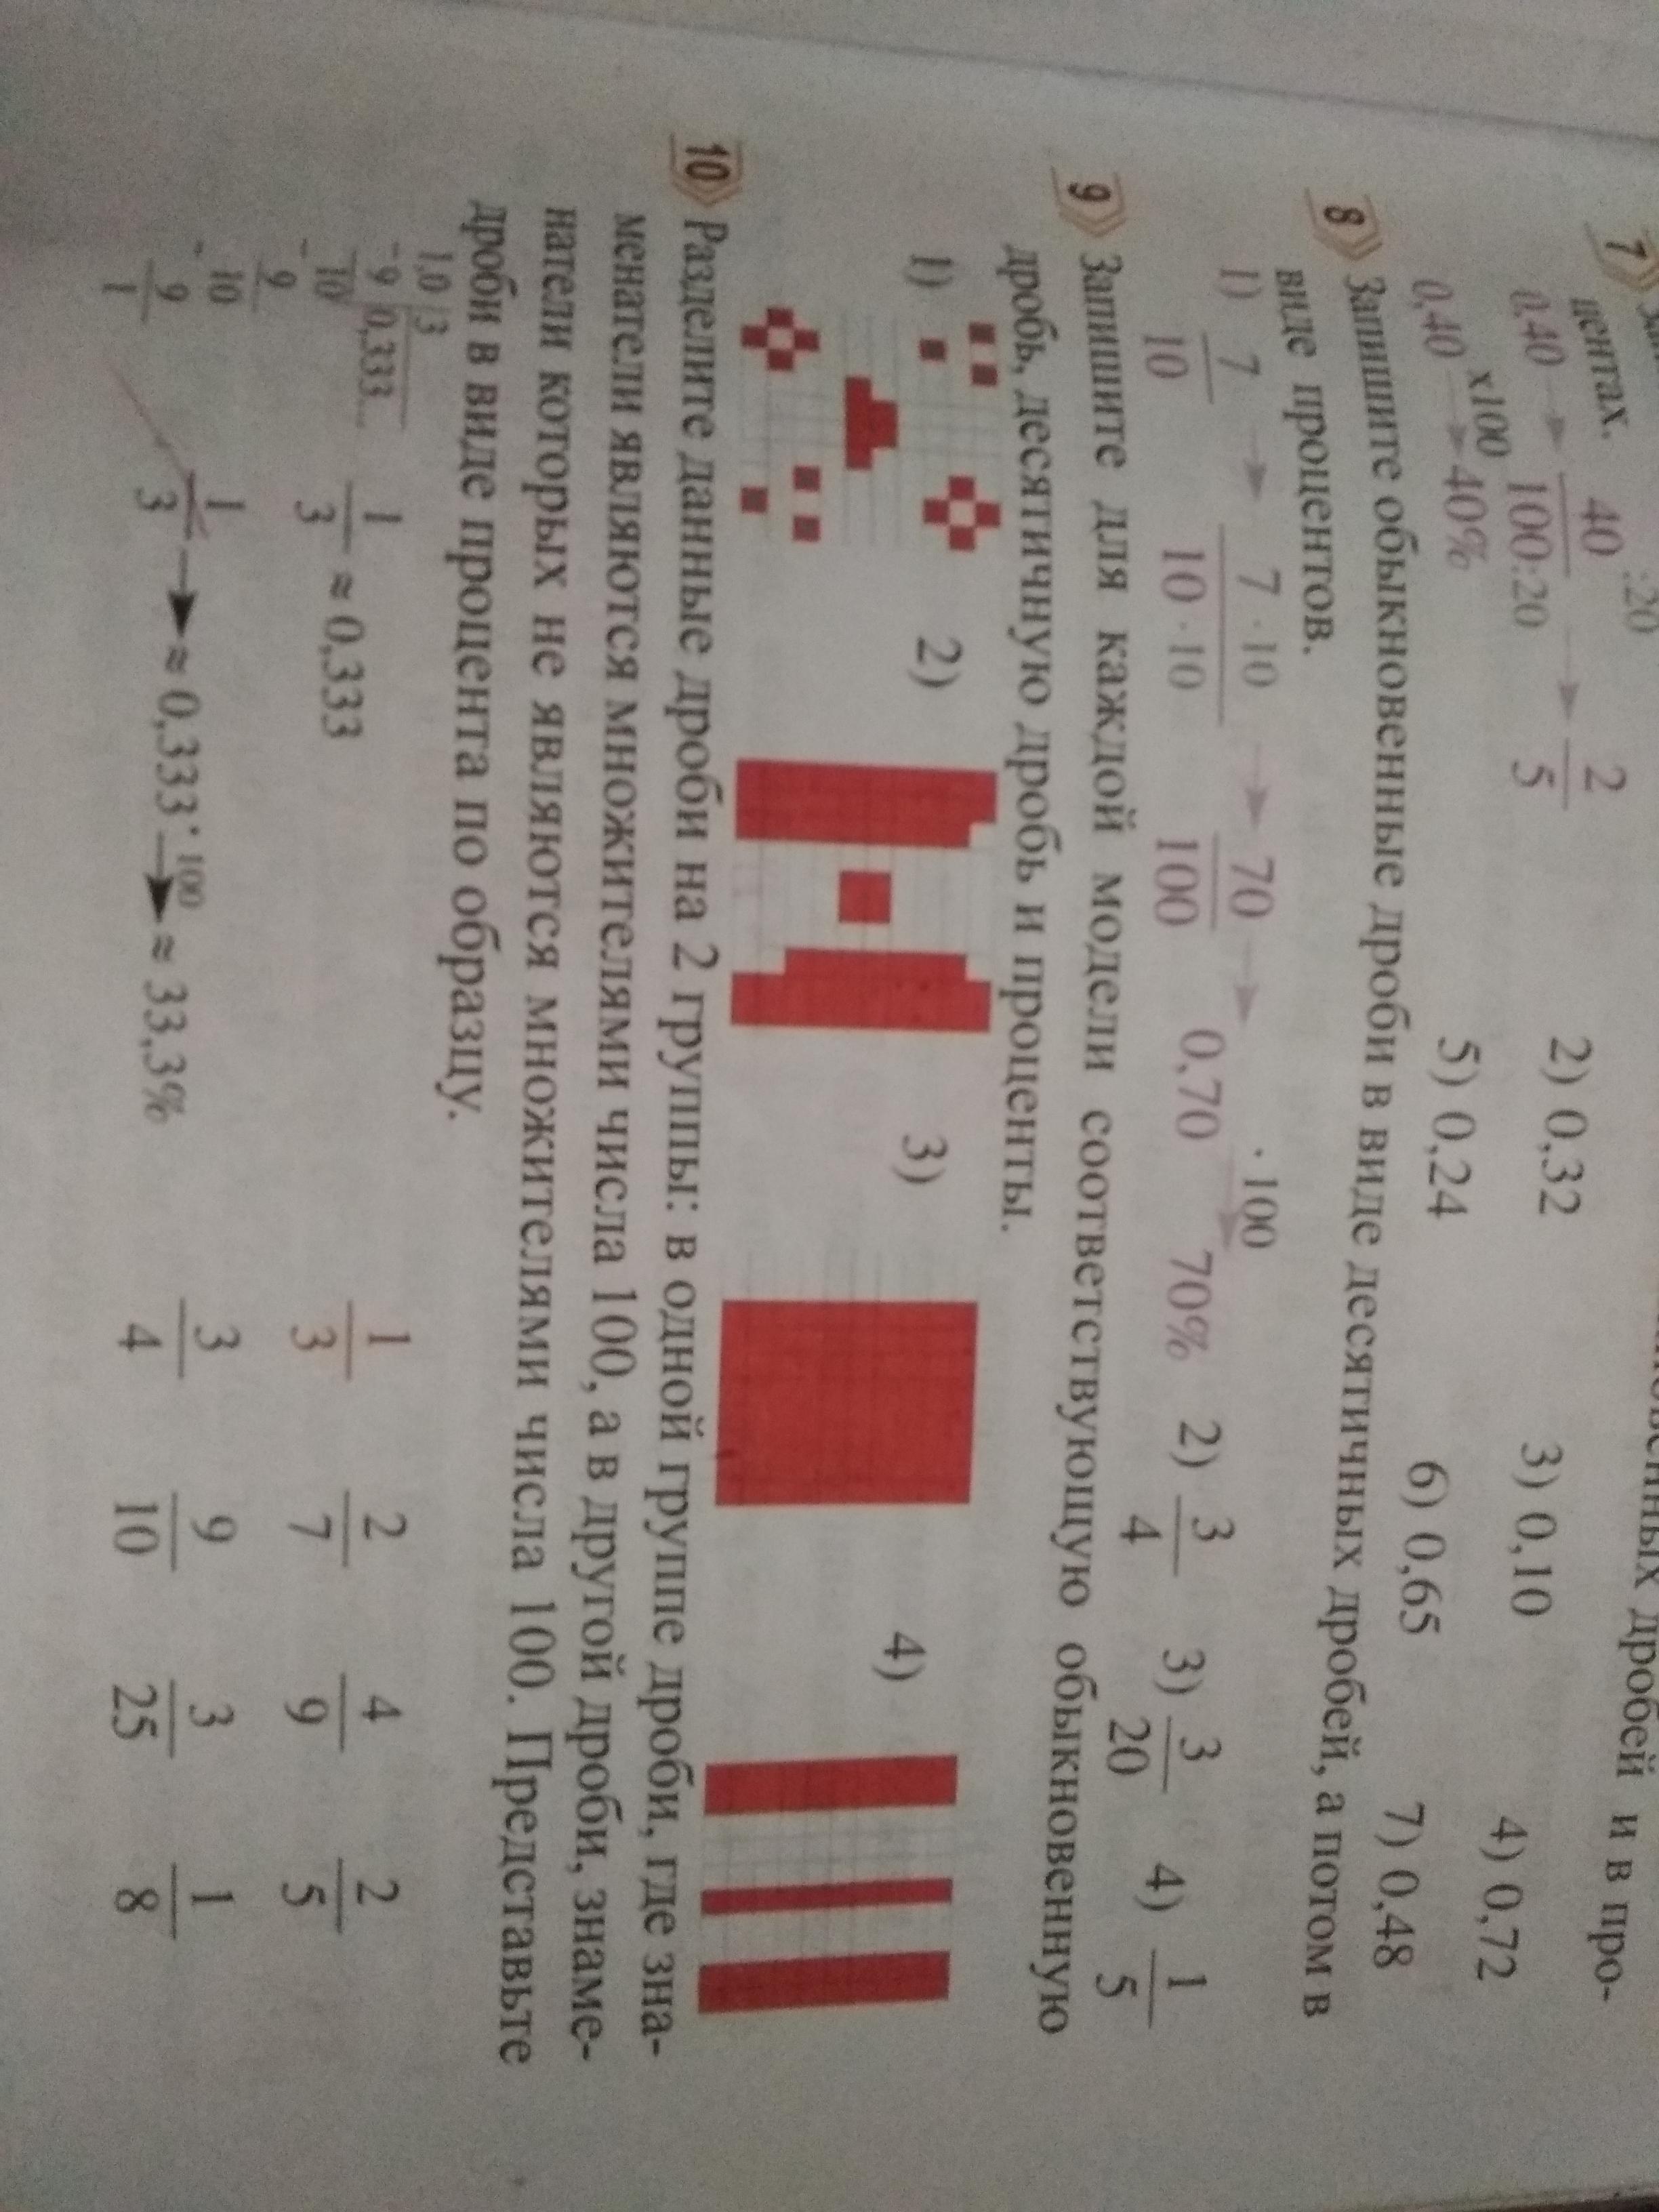 7
центах.
:20
0,40 → 40/100:20 → 2/5
x100
0,40 → 40%
2) 0,32 3) 0,10 4) 0,72
5) 0,24 6) 0,65 7) 0,48
дробей и в про-
8 Запишите обыкновенные дроби в виде десятичных дробей, а потом в
виде процентов.
1) 7/10 → 7 · 10/10 · 10 → 70/100 → 0,70 · 100 → 70% 2) 3/4 3) 3/20 4) 1/5
9 Запишите для каждой модели соответствующую обыкновенную
дробь, десятичную дробь и проценты.
1) 2) 3) 4)
10 Разделите данные дроби на 2 группы: в одной группе дроби, где зна-
менатели являются множителями числа 100, а в другой дроби, знаме-
натели которых не являются множителями числа 100. Представьте
дроби в виде процента по образцу.
1,0 3
- 9 0,333...
10
- 9
10
- 9
1
1/3 ≈ 0,333
1/3 → ≈ 0,333 · 100 → ≈ 33,3%
1/3 2/7 4/9 2/5
3/4 9/10 3/25 1/8